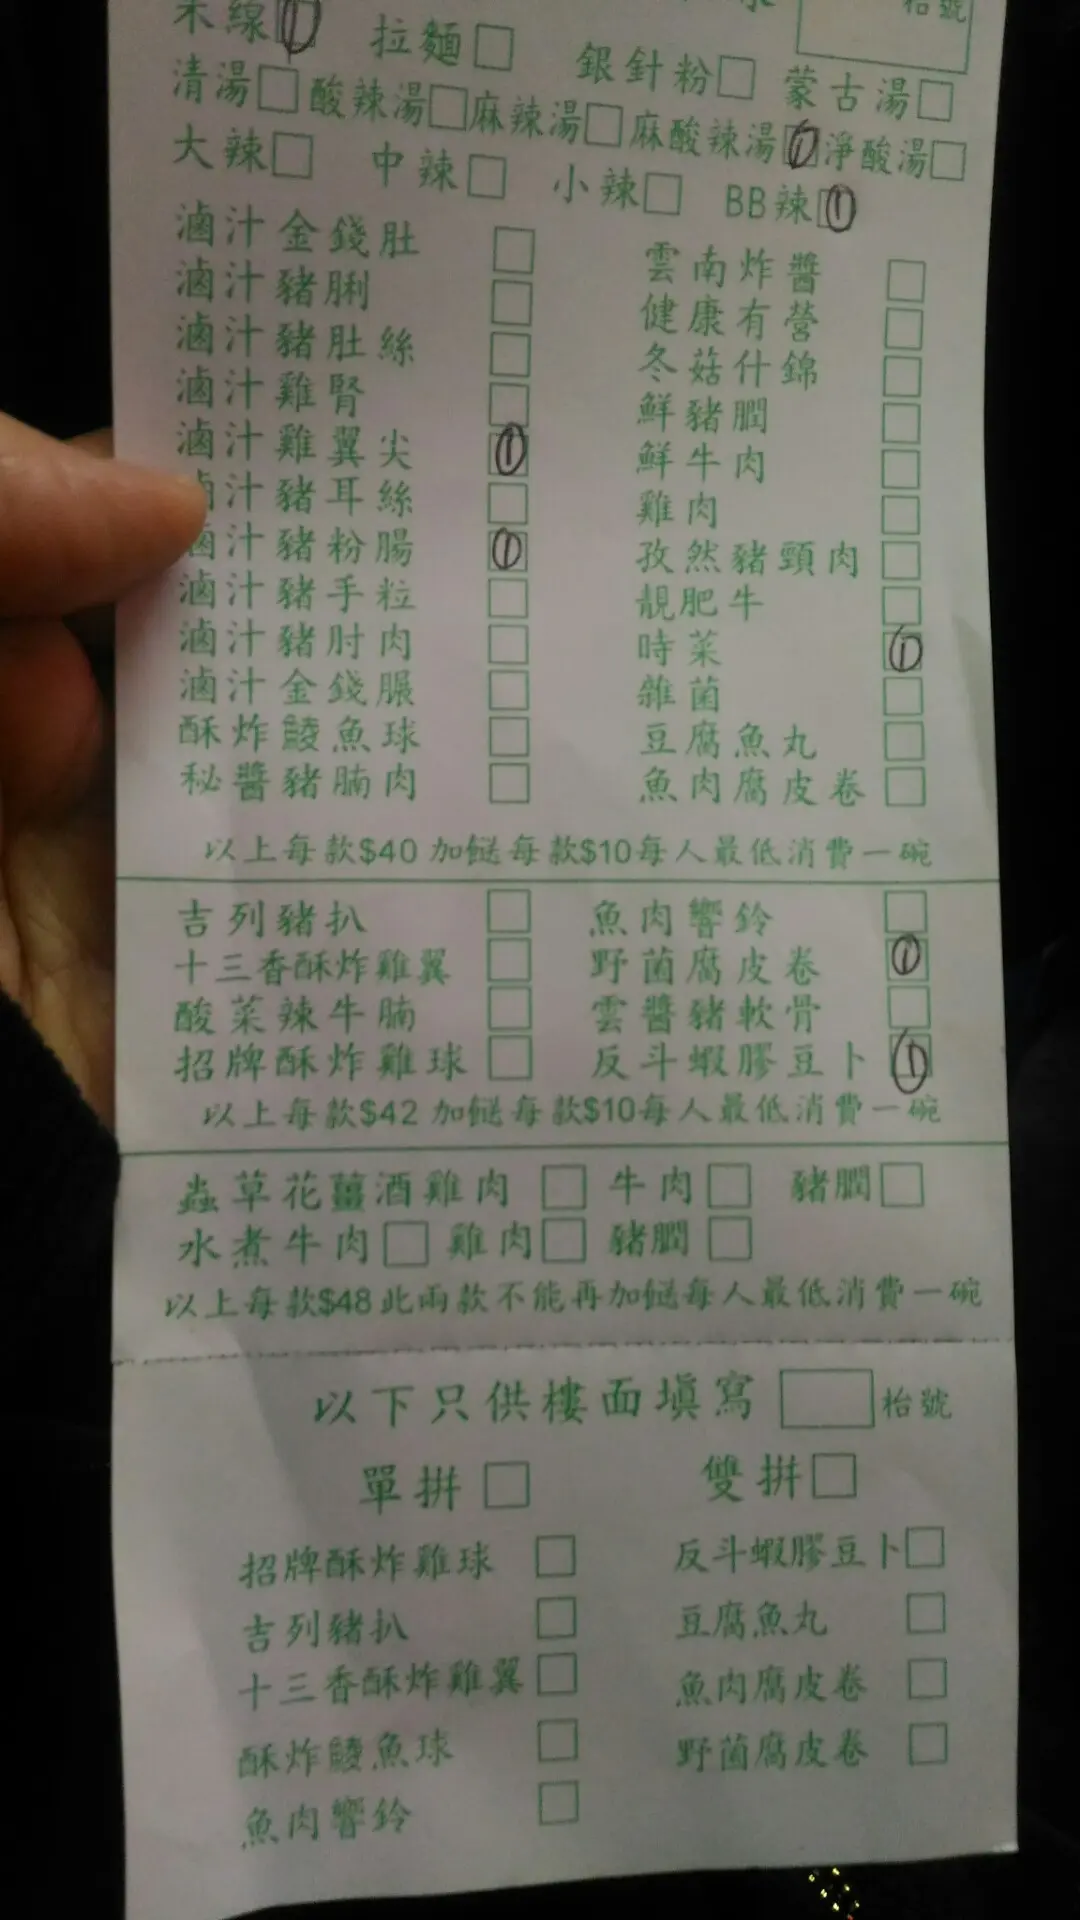 米線 ① 拉麵 銀針粉 蒙古湯 枱號
清湯 酸辣湯 麻辣湯 麻酸辣湯 ① 淨酸湯
大辣 中辣 小辣 BB辣 ①
滷汁金錢肚 雲南炸醬
滷汁豬脷 健康有營
滷汁豬肚絲 冬菇什錦
滷汁雞腎 鮮豬膶
滷汁雞翼尖 ① 鮮牛肉
滷汁豬耳絲 雞肉
滷汁豬粉腸 ① 孜然豬頸肉
滷汁豬手粒 靚肥牛
滷汁豬肘肉 時菜 ①
滷汁金錢𦟌 雜菌
酥炸鯪魚球 豆腐魚丸
秘醬豬腩肉 魚肉腐皮卷
以上每款$40 加餸每款$10每人最低消費一碗
吉列豬扒 魚肉響鈴
十三香酥炸雞翼 野菌腐皮卷 ①
酸菜辣牛腩 雲醬豬軟骨
招牌酥炸雞球 反斗蝦膠豆卜 ①
以上每款$42 加餸每款$10每人最低消費一碗
蟲草花薑酒雞肉 牛肉 豬膶
水煮牛肉 雞肉 豬膶
以上每款$48此兩款不能再加餸每人最低消費一碗
以下只供樓面填寫 枱號
單拼 雙拼
招牌酥炸雞球 反斗蝦膠豆卜
吉列豬扒 豆腐魚丸
十三香酥炸雞翼 魚肉腐皮卷
酥炸鯪魚球 野菌腐皮卷
魚肉響鈴